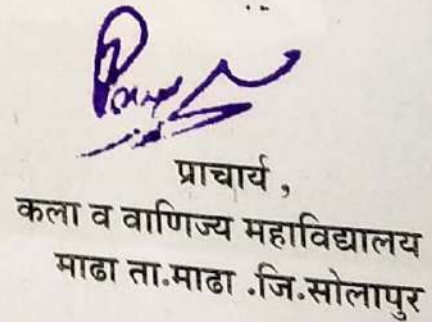 प्राचार्य ,
कला व वाणिज्य महाविद्यालय
माढा ता.माढा .जि.सोलापुर